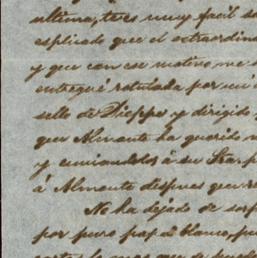 ultima, te es muy facil
esplicado que el estraordin
y que con ese motivo me
entregué rotulada por mi
sello de Dieppe y dirigido
que Almonte ha querido
y enviandolos á su
á Almonte despues que
No ha dejado de sor
por puro papel blanco, pu